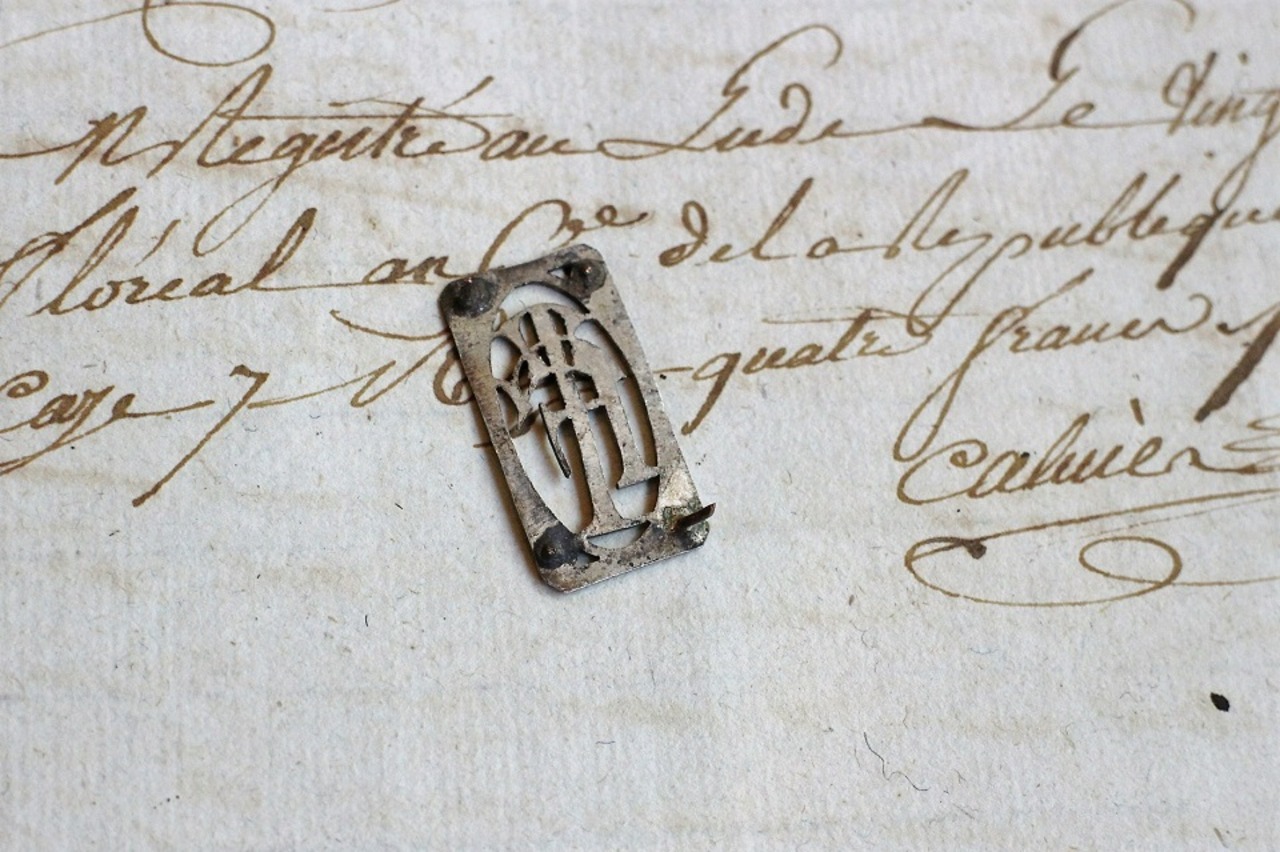 N Registré au Lude Le Vingt
floréal an de la Republique
Case 7 quatre francs
Cahier